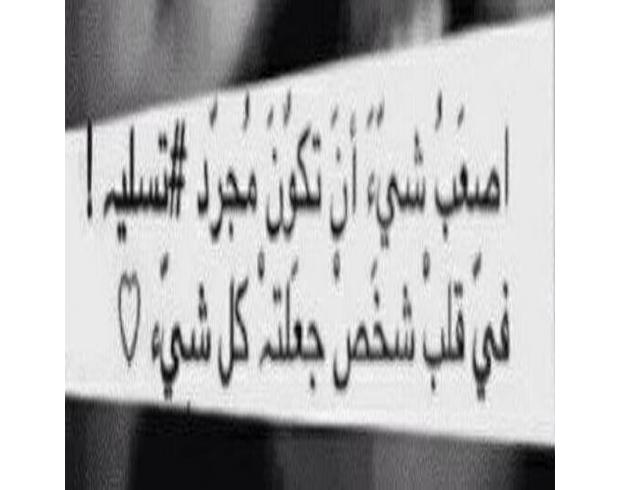 اصعَبُ شيَءَ أنَ تَكوُنَ مُجرَدَ #تسليہ !
فيَ قلبْ شخَصْ جعَلتہْ كل شيَء ♡